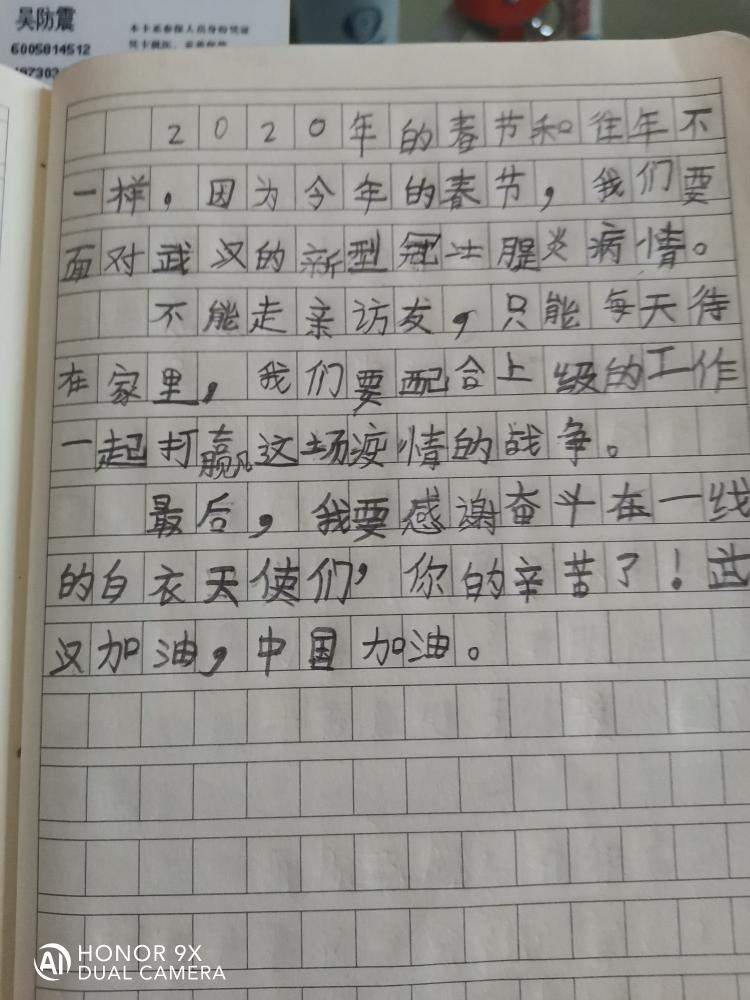 吴防震
6005814512
2020年的春节和往年不
一样，因为今年的春节，我们要
面对武汉的新型冠壮腥炎病情。
不能走亲访友，只能每天待
在家里，我们要配合上级的工作
一起打赢这场疫情的战争。
最后，我要感谢奋斗在一线
的白衣天使们，你的辛苦了！武
汉加油，中国加油。
HONOR 9X
DUAL CAMERA